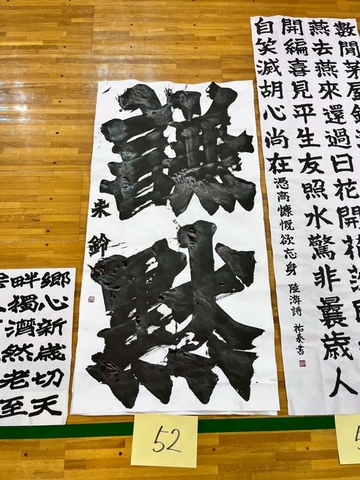 數間茅屋鏡
燕去燕來還過日花開花落
開編喜見平生友照水驚非曩歲人
自笑滅胡心尚在憑高慷慨欲忘身 陸游詩 祐泰書
謙默
来鈴
鄉心新歲切天
畔獨潸然老至
52